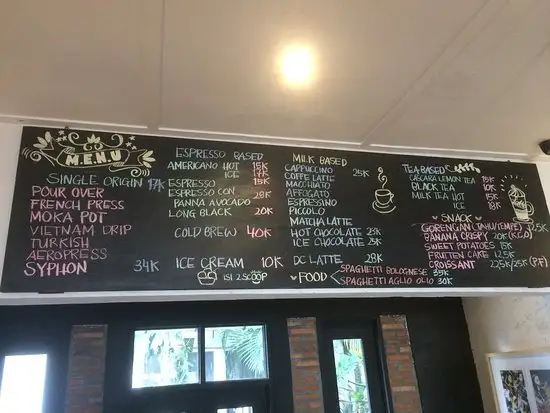 MENU
SINGLE ORIGIN 17K
POUR OVER
FRENCH PRESS
MOKA POT
VIETNAM DRIP
TURKISH
AEROPRESS
SYPHON 34K
ESPRESSO BASED
AMERICANO HOT 15K
ICE 17K
ESPRESSO 15K
ESPRESSO CON
PANNA AVOCADO 28K
LONG BLACK 20K
COLD BREW 40K
ICE CREAM 10K
isi 2 scoop
MILK BASED
CAPPUCCINO
COFFE LATTE 25K
MACCHIATO
AFFOGATO
ESPRESSINO
PICCOLO
MATCHA LATTE
HOT CHOCOLATE
ICE CHOCOLATE 25K
DC LATTE 28K
FOOD
SPAGHETTI BOLOGNESE 35K
SPAGHETTI AGLIO OLIO 30K
TEA BASED
CASCARA LEMON TEA 18K
BLACK TEA 10K
MILK TEA HOT 15K
ICE 18K
SNACK
GORENGAN (TAHU/TEMPE) 12.5K
BANANA CRISPY 20K
SWEET POTATOES 15K
FRUITTEN CAKE 12.5K
CROISSANT